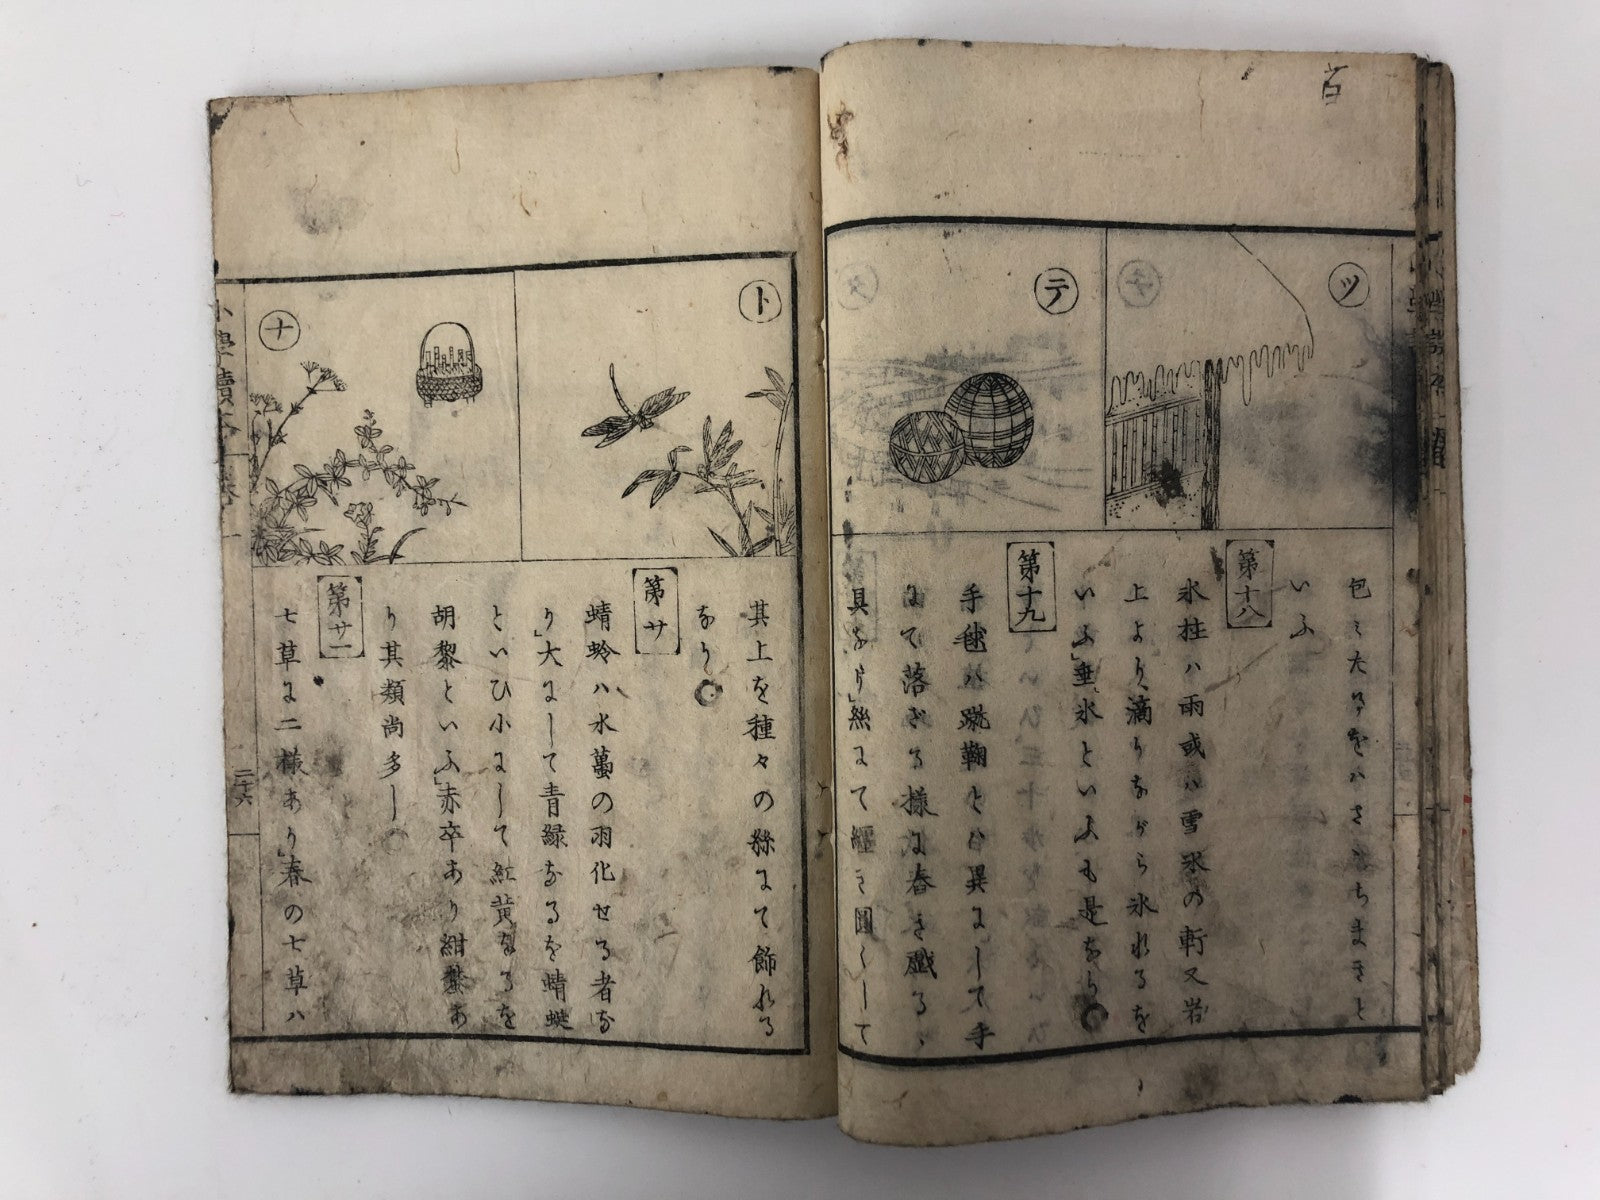 ツ
テ
包と大なるをばささちまきと
いふ
第十八
氷柱ハ雨或ハ雪氷の軒又岩
上より滴りながら氷れるを
いふ」垂氷といふも是なり
第十九
手毬ハ蹴鞠とハ異にして手
にて落ざる様に舂き戯る
具なり」絲にて纏き圓くして
ト
ナ
其上を種々の絲にて飾れる
なり
第廿
蜻蛉ハ水蠆の羽化せる者な
り」大にして青緑なるを蜻蜓
といひ小にして紅黄なるを
胡黎といふ」赤卒あり紺蠜あ
り其類尚多し
第廿一
七草に二様あり」春の七草ハ
小學讀本
二十六